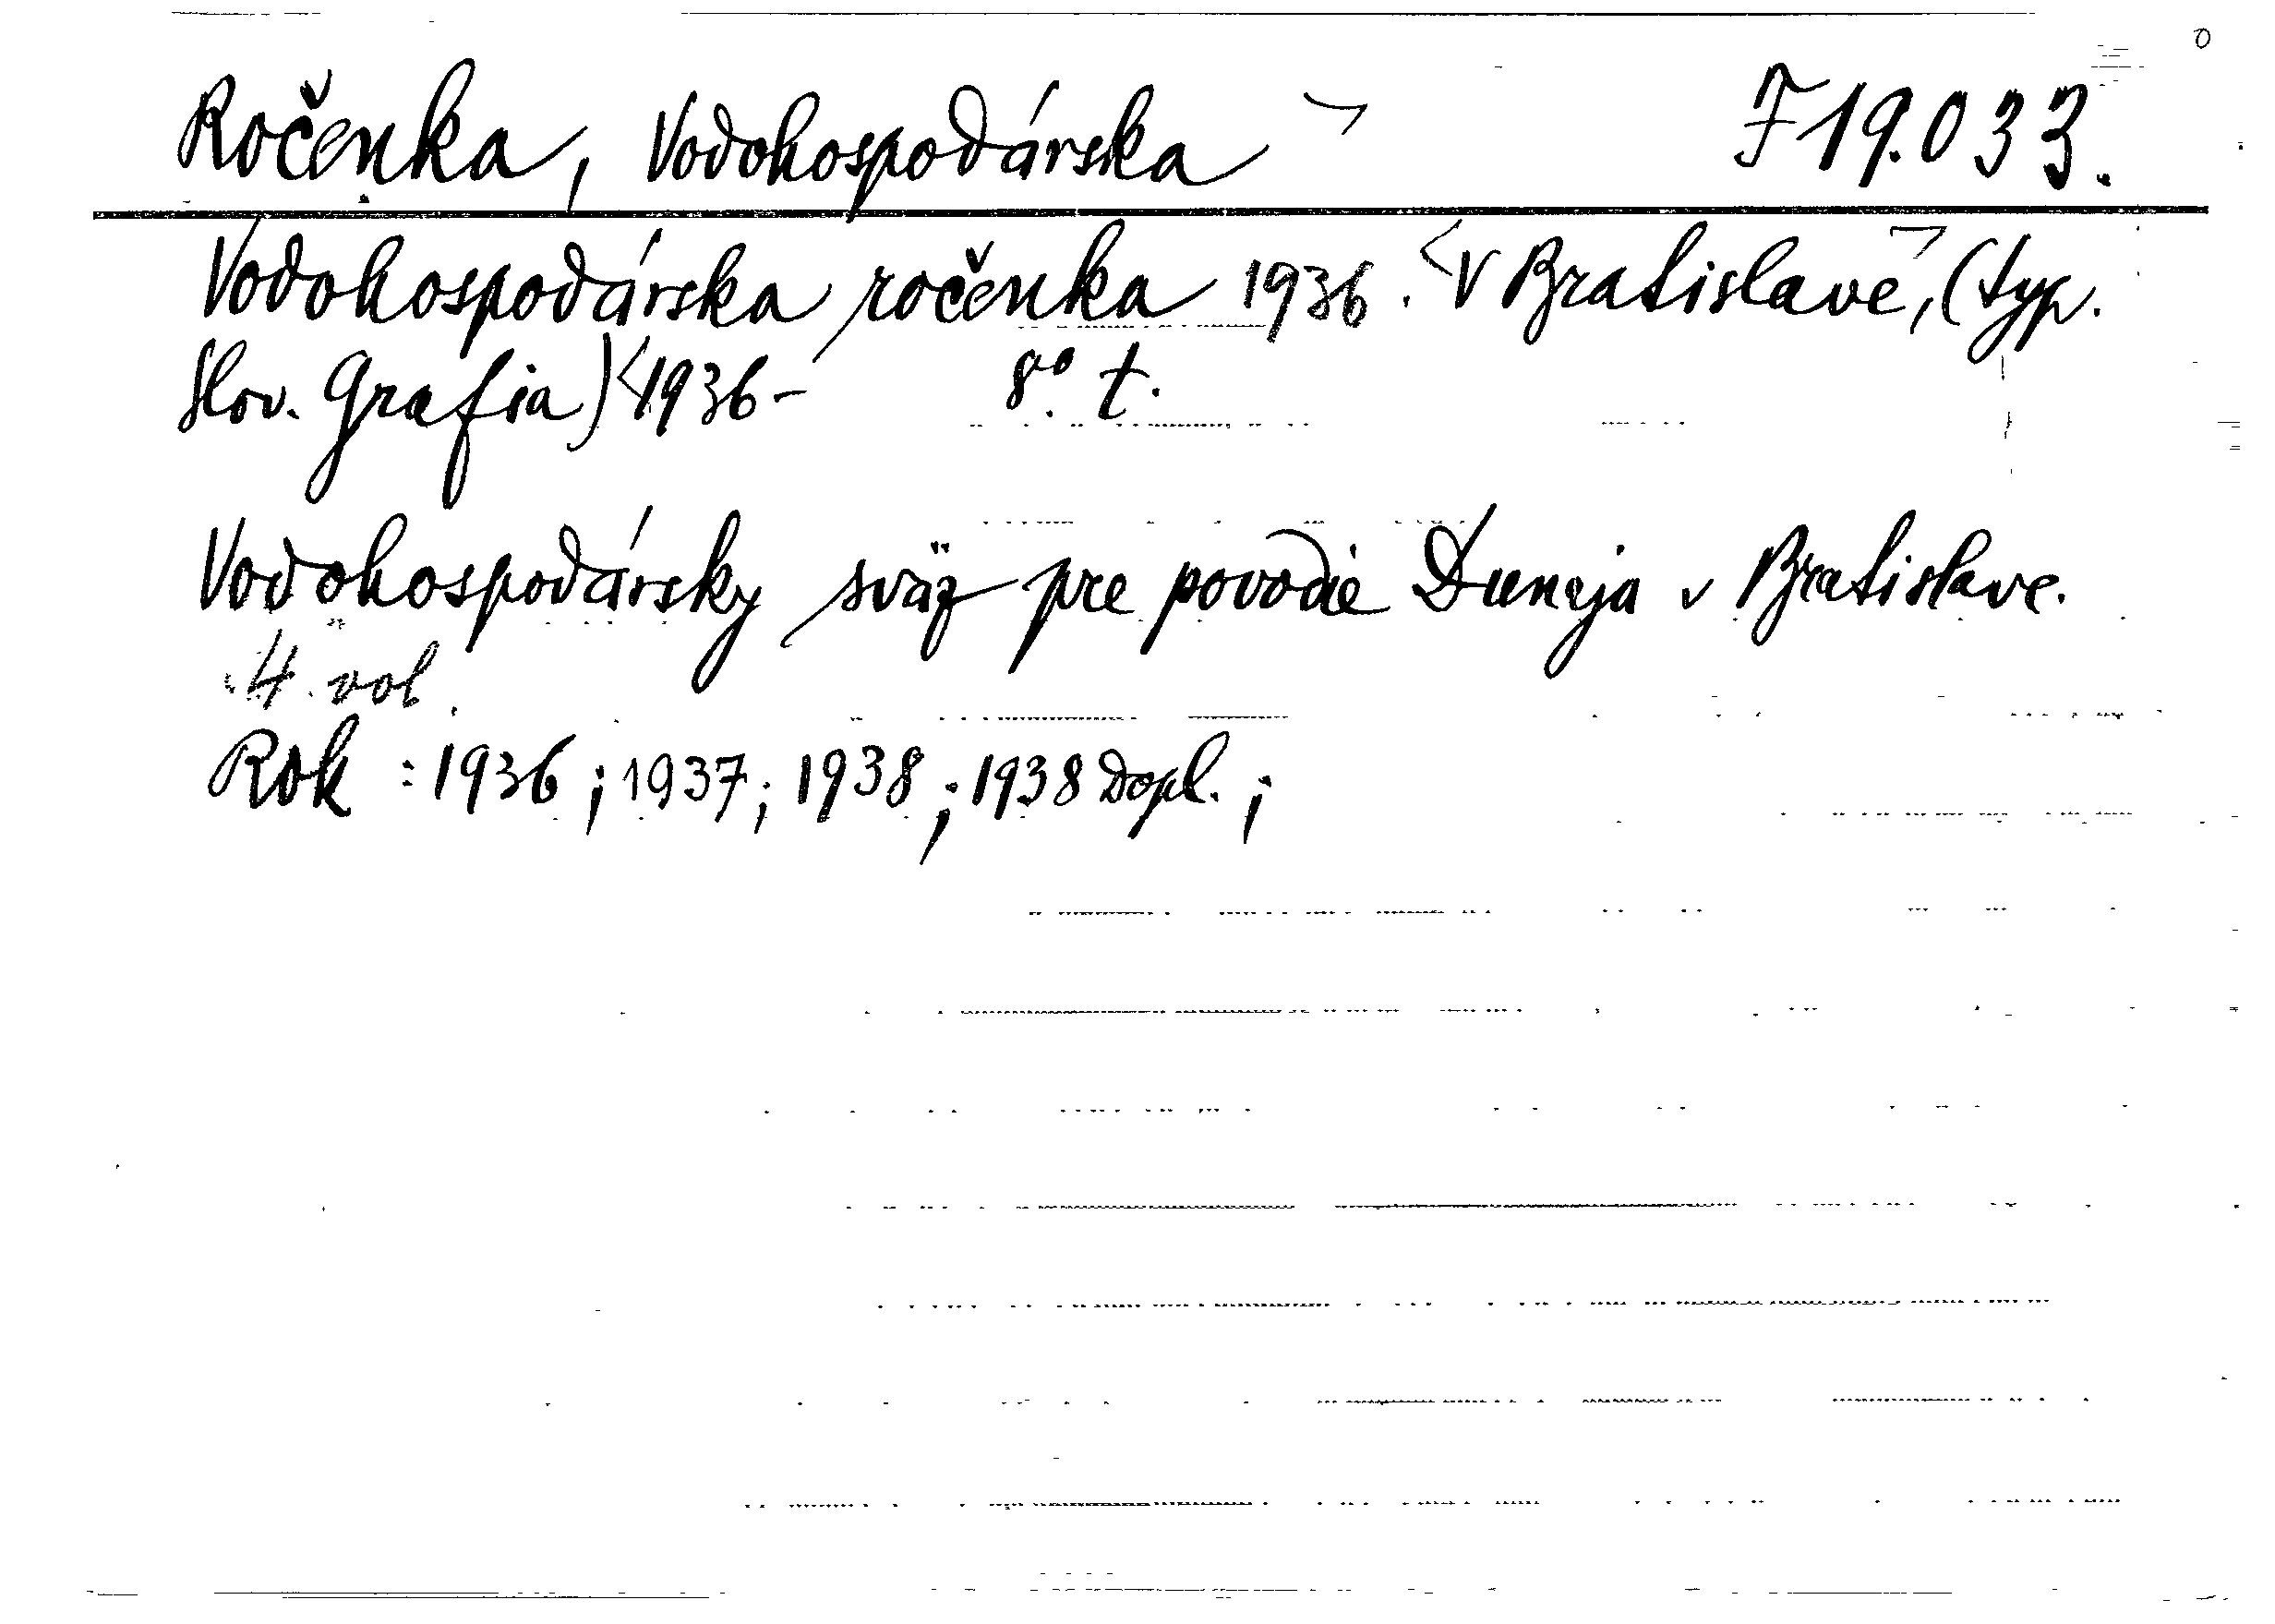 Ročenka, Vodohospodárska ¬ F 19.033.
Vodohospodárska ročenka 1936. <V Bratislave¬, (typ.
Slov. Grafia) <1936- 8° t.
Vodohospodársky sväz pre povodie Dunaja v Bratislave.
4. vol.
Rok: 1936; 1937; 1938; 1938 Dopl.;